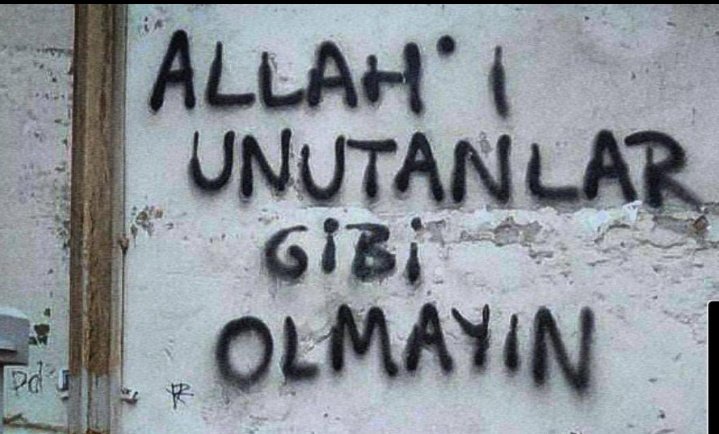 ALLAH'I
UNUTANLAR
GİBİ
OLMAYIN